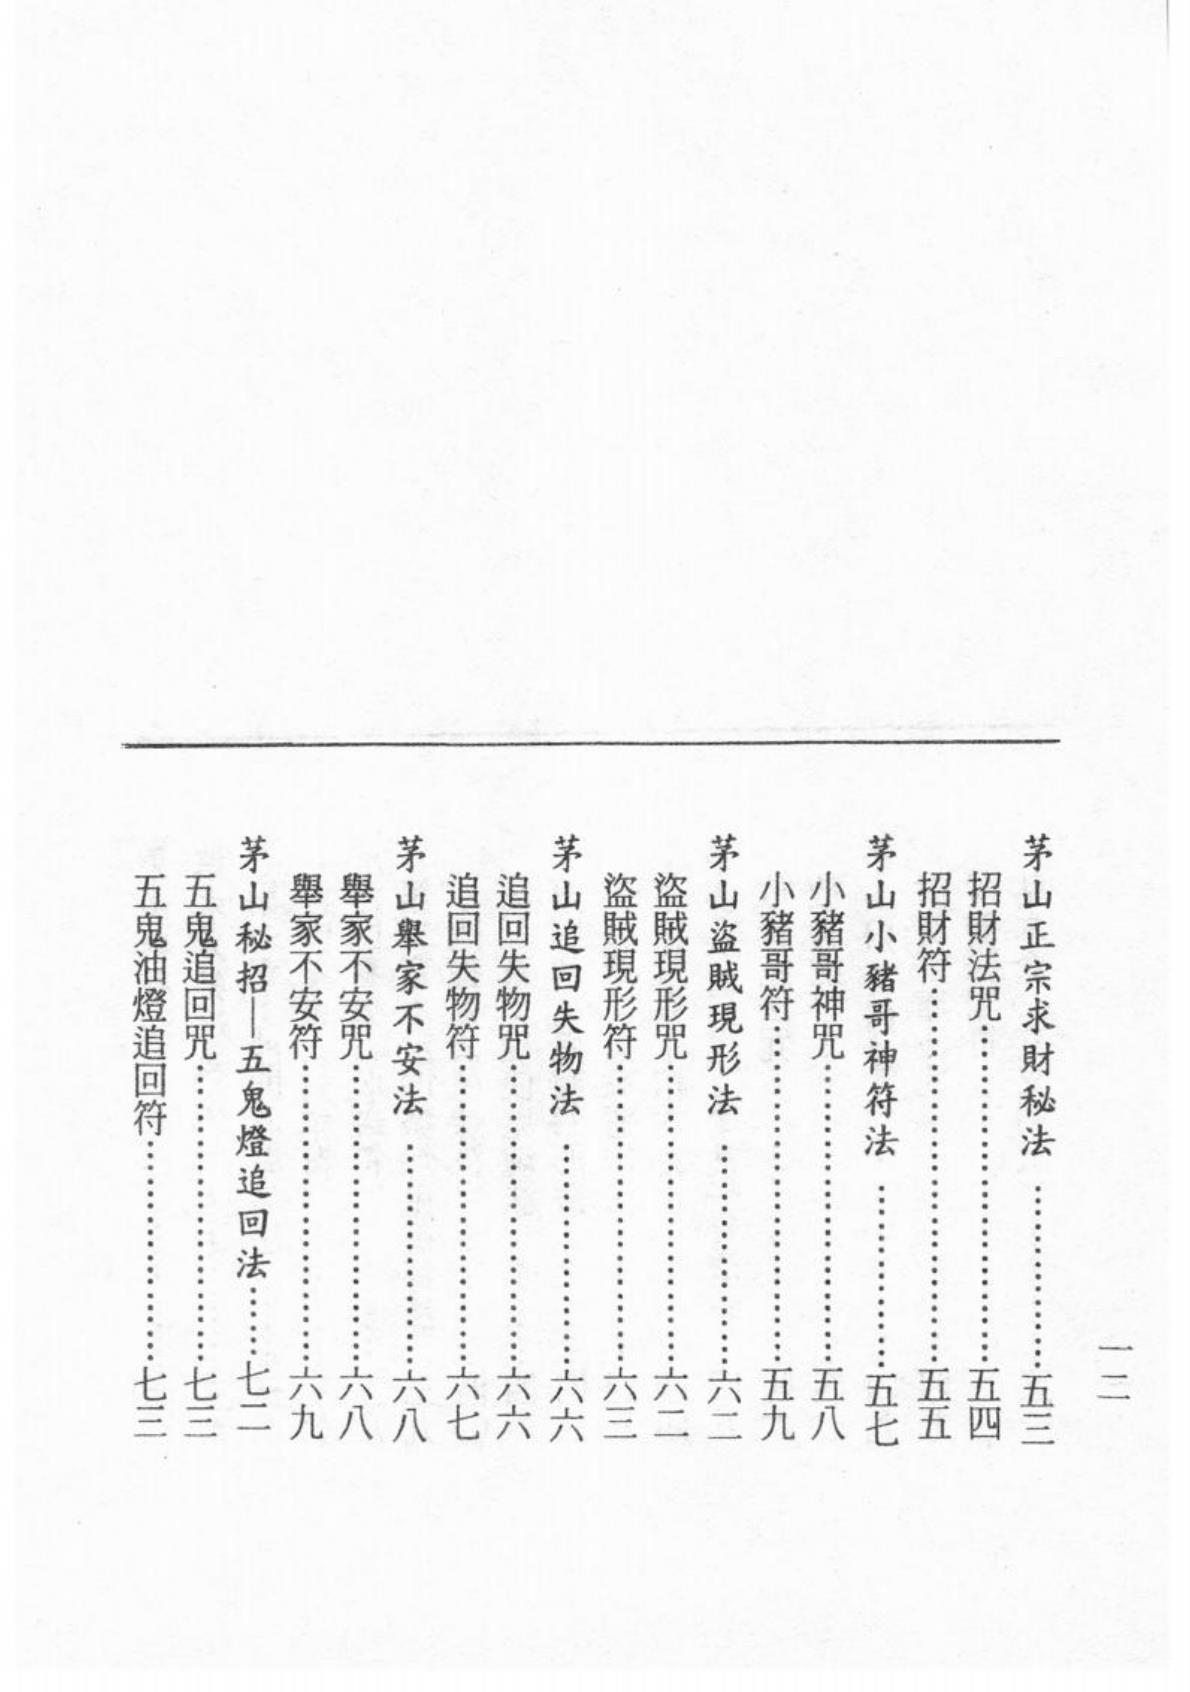 一二
茅山正宗求財秘法…………五三
招財法咒…………五四
招財符…………五五
茅山小豬哥神符法…………五七
小豬哥神咒…………五八
小豬哥符…………五九
茅山盜賊現形法…………六二
盜賊現形咒…………六二
盜賊現形符…………六三
茅山追回失物法…………六六
追回失物咒…………六六
追回失物符…………六七
茅山舉家不安法…………六八
舉家不安咒…………六八
舉家不安符…………六九
茅山秘招—五鬼燈追回法……七二
五鬼追回咒…………七三
五鬼油燈追回符…………七三